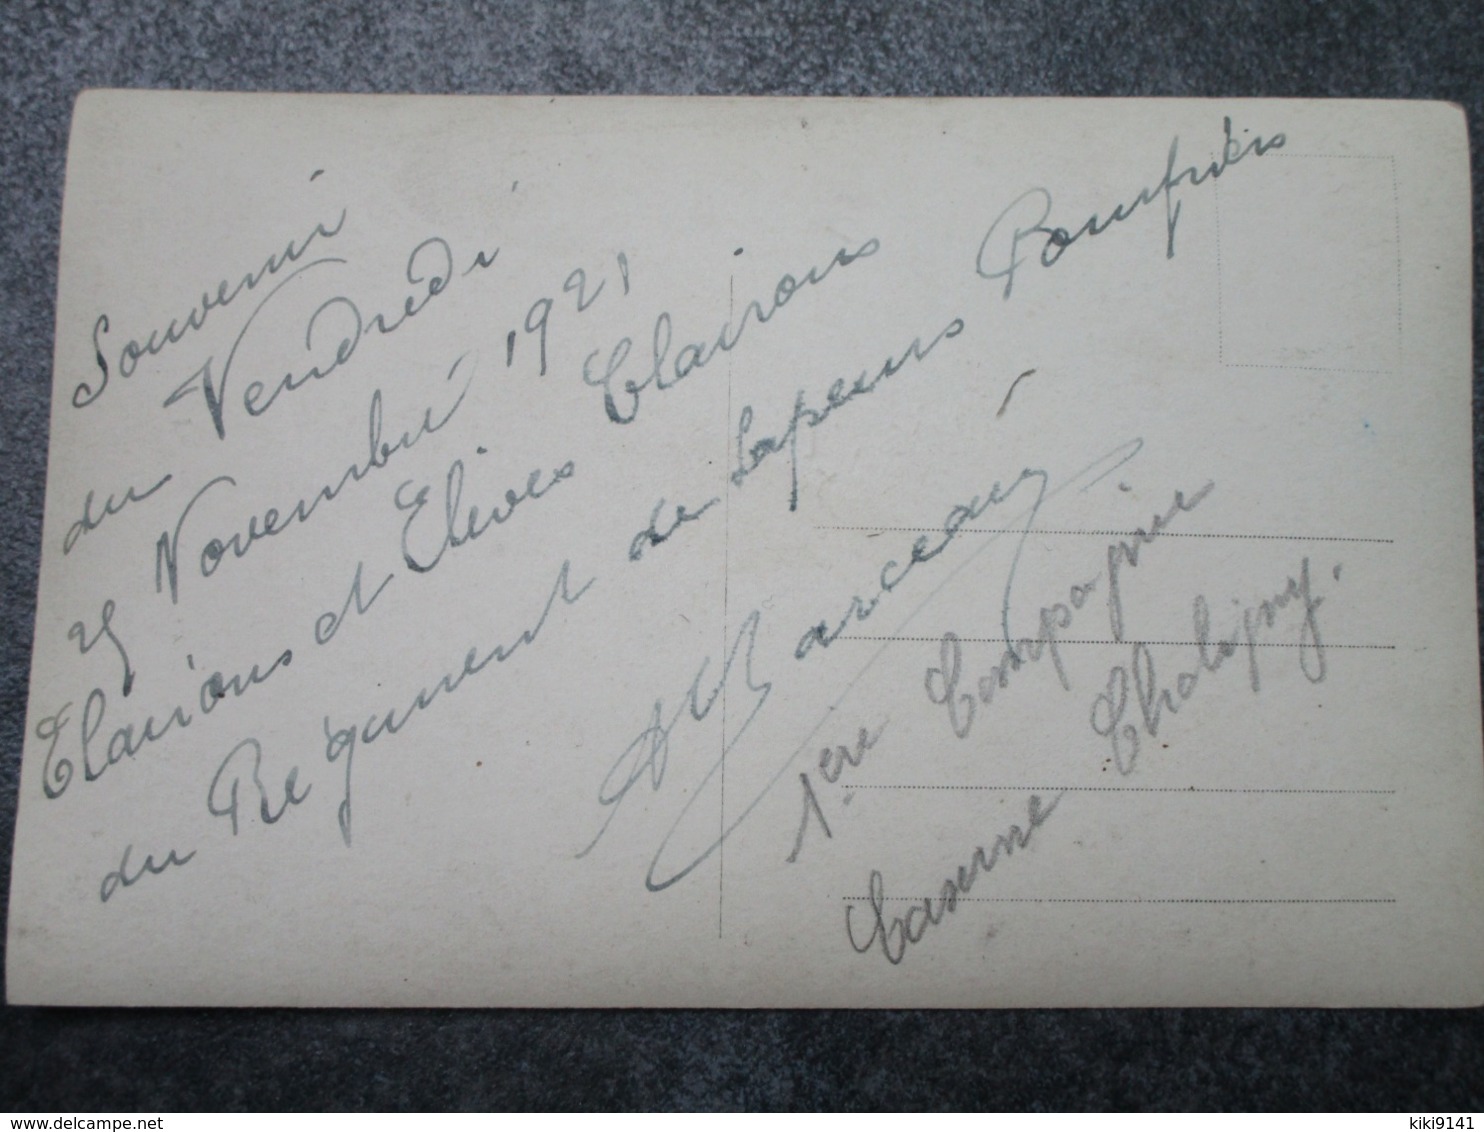 Souvenir
du Vendredi
25 Novembre 1921
Clairons et Elèves Clairons
du Régiment de Sapeurs Pompiers
Marceau
1ère Compagnie
Caserne Chaligny.
delcampe.net
kiki9141